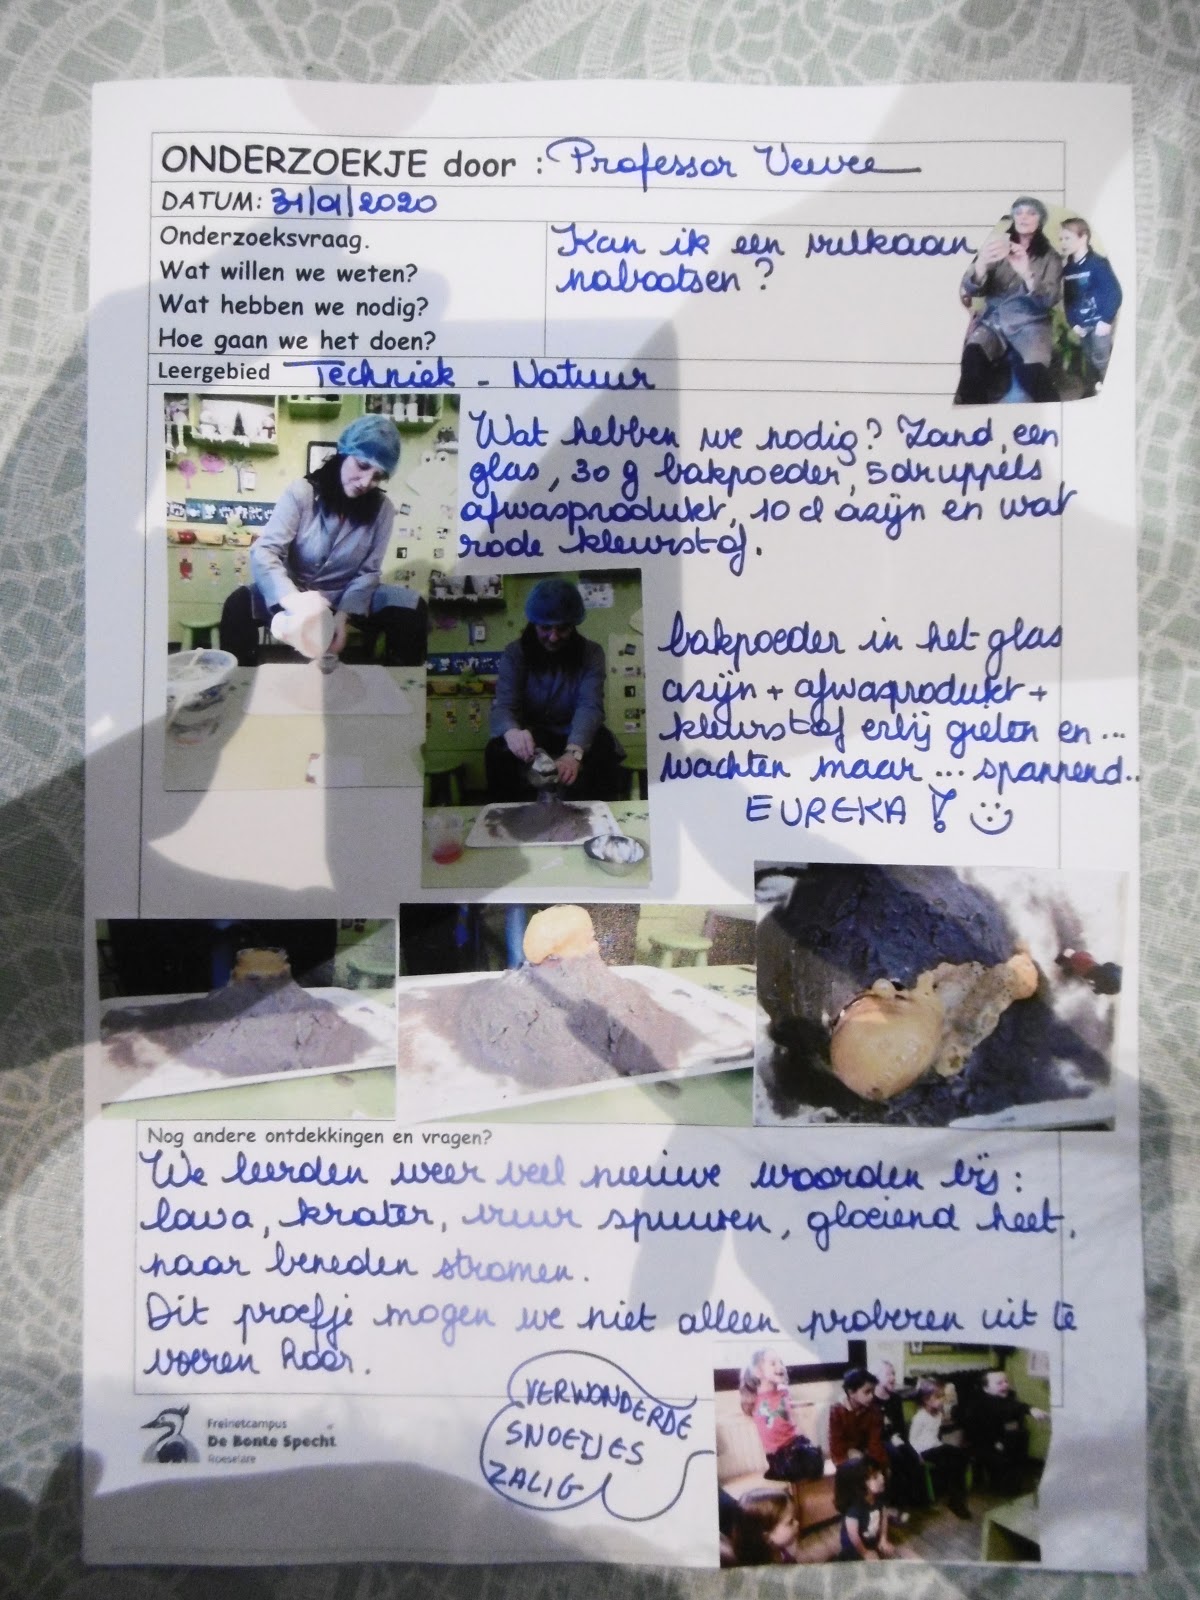 ONDERZOEKJE door : Professor Veevee
DATUM: 31/01/2020
Onderzoeksvraag.
Wat willen we weten?
Wat hebben we nodig?
Hoe gaan we het doen?
Kan ik een vulkaan
nabootsen ?
Leergebied Techniek - Natuur
Wat hebben we nodig? Zand, een
glas, 30 g bakpoeder, 5 druppels
afwasprodukt, 10 cl azijn en wat
rode kleurstof.
bakpoeder in het glas
azijn + afwasprodukt +
kleurstof erbij gieten en ...
wachten maar ... spannend..
EUREKA !
Nog andere ontdekkingen en vragen?
We leerden weer veel nieuwe woorden bij :
lava, krater, vuur spuwen, gloeiend heet,
naar beneden stromen.
Dit proefje mogen we niet alleen proberen uit te
voeren hoor.
VERWONDERDE
SNOETJES
ZALIG
Freinetcampus
De Bonte Specht
Roeselare